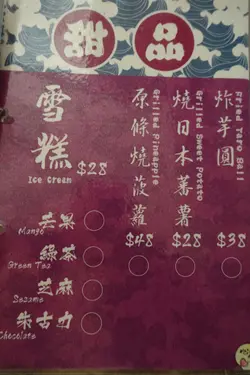 甜品
炸芋圓
Fried Taro Ball
$38
燒日本蕃薯
Grilled Sweet Potato
$28
原條燒菠蘿
Grilled Pineapple
$48
雪糕
Ice Cream
$28
芒果
Mango
綠茶
Green Tea
芝麻
Sesame
朱古力
Chocolate